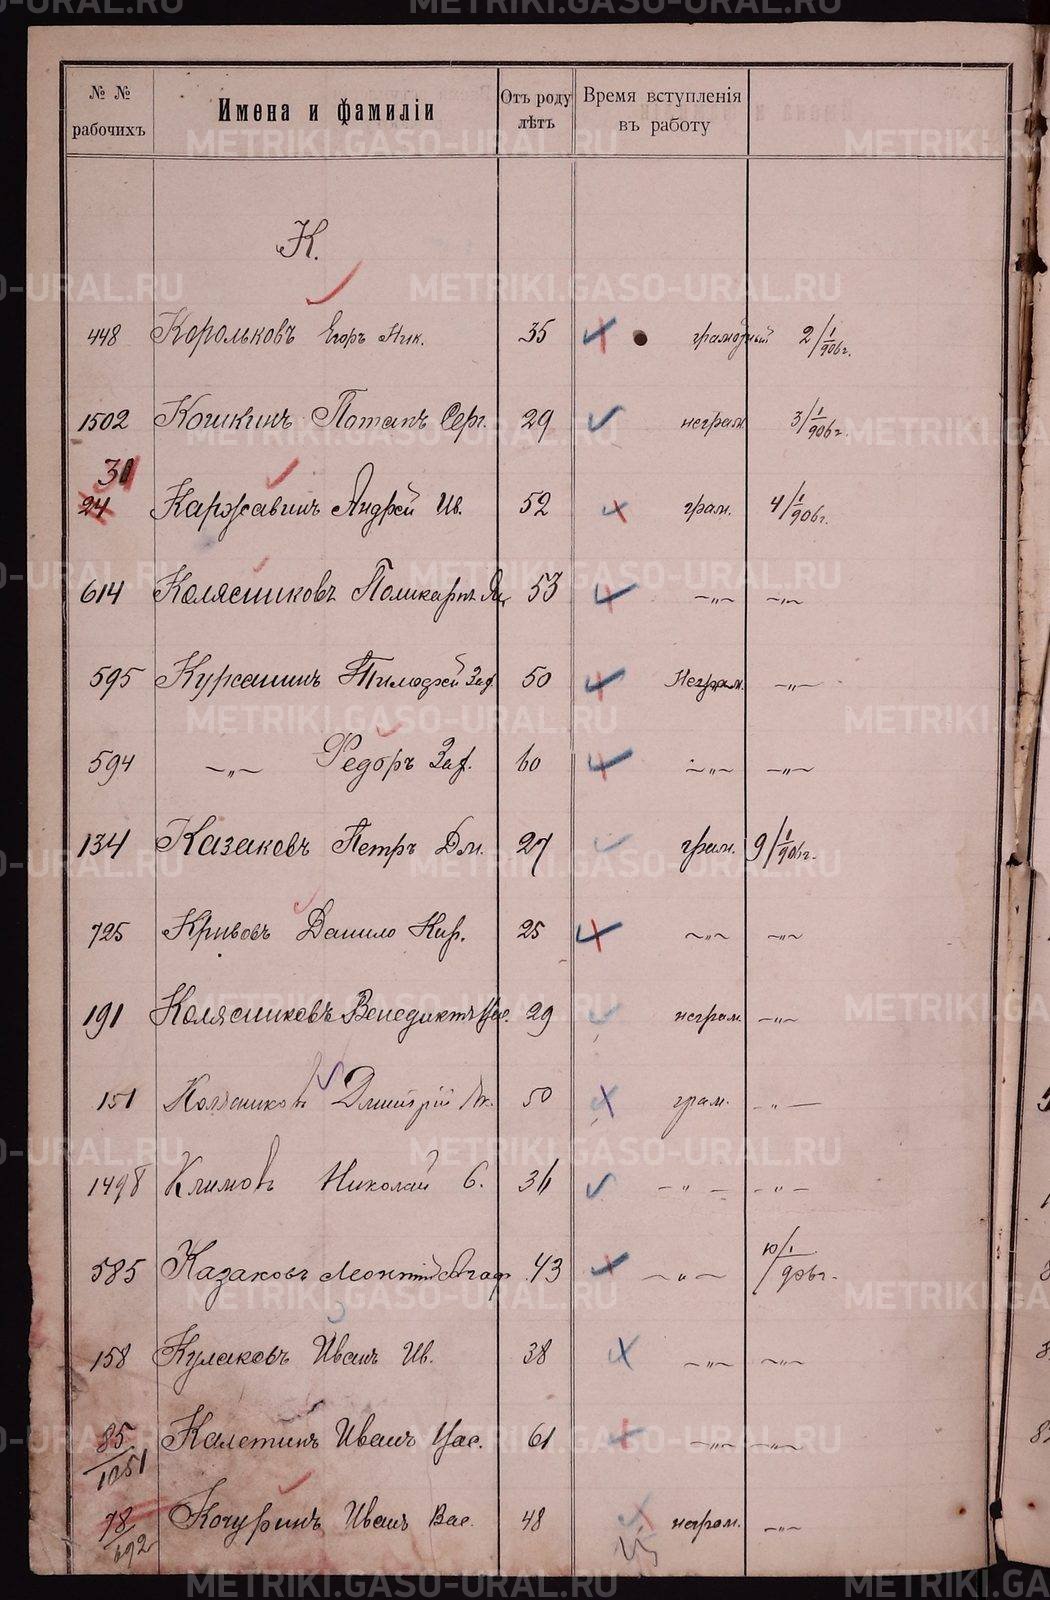 № № рабочихъ Имена и фамиліи Отъ роду лѣтъ Время вступленія въ работу
К.
448 Корольковъ Егоръ Ник. 35 грамотный 2/1 906г.
1502 Кошкинъ Потапъ Серг. 29 неграм. 3/1 906г.
30 24 Каржавинъ Андрей Ив. 52 грам. 4/1 906г.
614 Колясниковъ Поликарпъ 53 -„- -„-
595 Курсанинъ Тимофей Заф. 50 Неграм. -„-
594 -„- Федоръ Заф. 60 -„- -„-
134 Казаковъ Петръ Дм. 27 грам. 9/1 906г.
725 Кривовъ Данило Кир. 25 -„- -„-
191 Колясниковъ Венедиктъ 29 неграм. -„-
151 Колясниковъ Дмитрій Як. 50 грам. -„-
1498 Климовъ Николай С. 36 -„- -„-
585 Казаковъ Леонтій Агаф 43 -„- 10/1 906г.
158 Кулаковъ Иванъ Ив. 38 -„- -„-
85/1051 Калетинъ Иванъ 61 -„- -„-
78/692 Кочуринъ Иванъ Вас. 48 неграм. -„-
METRIKI.GASO-URAL.RU